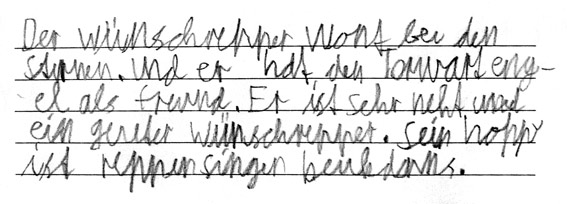 Der wünschrepper wont bei den
sternen. Und er hat den Torwarteng-
el als freund. Er ist sehr neht und
ein gereter wünschrepper. sein hoppy
ist reppensingen